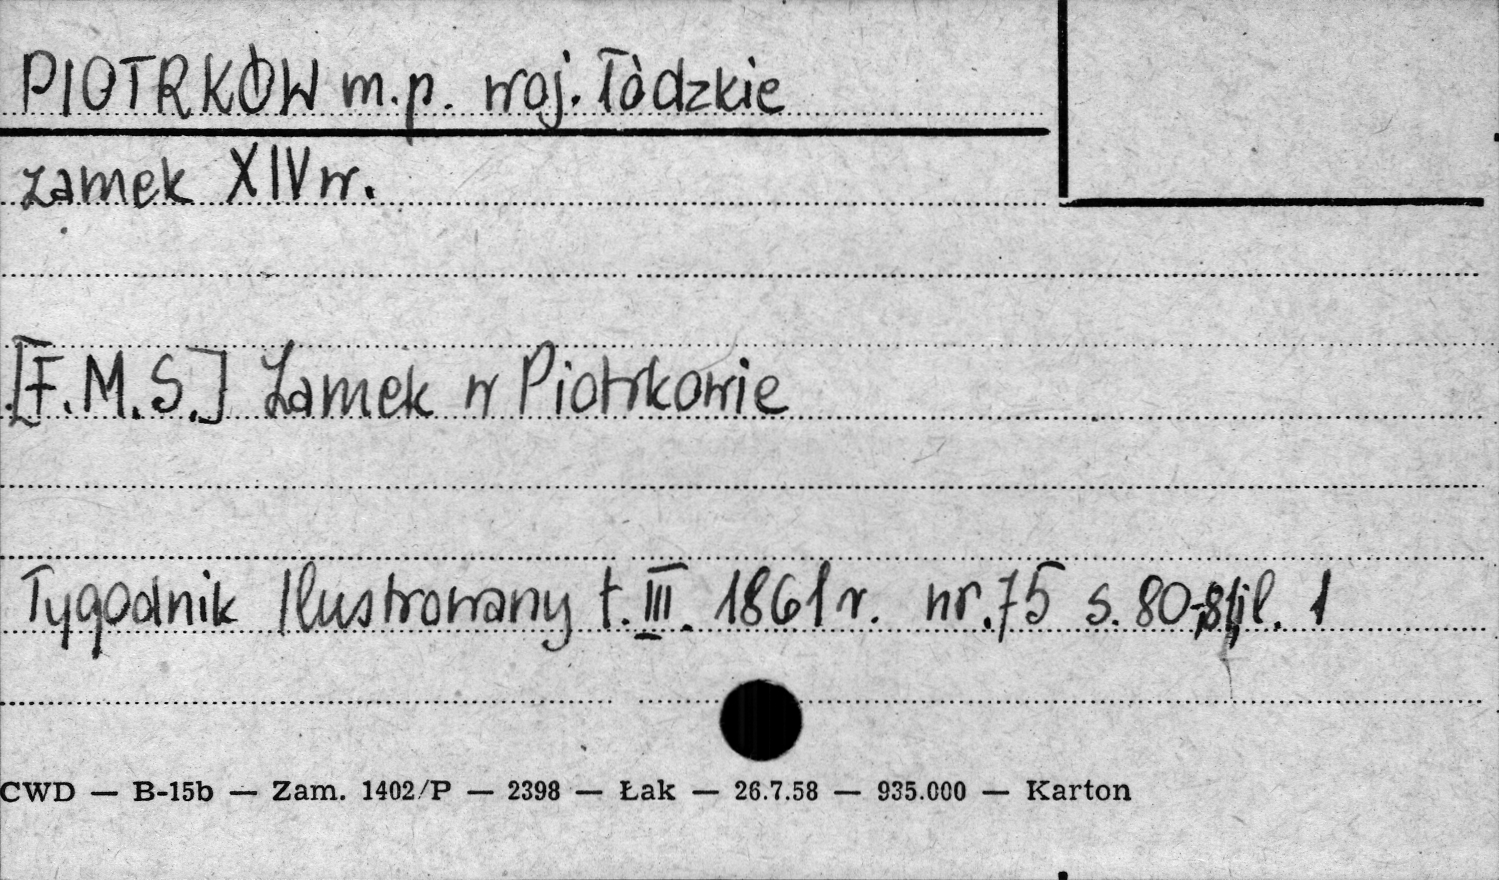 PIOTRKÓW m.p. woj. łódzkie
zamek XIV w.
[F.M.S.] Zamek w Piotrkowie
Tygodnik Ilustrowany t. III. 1861 r. nr. 75 s. 80-81, il. 1
CWD — B-15b — Zam. 1402/P — 2398 — Łak — 26.7.58 — 935.000 — Karton